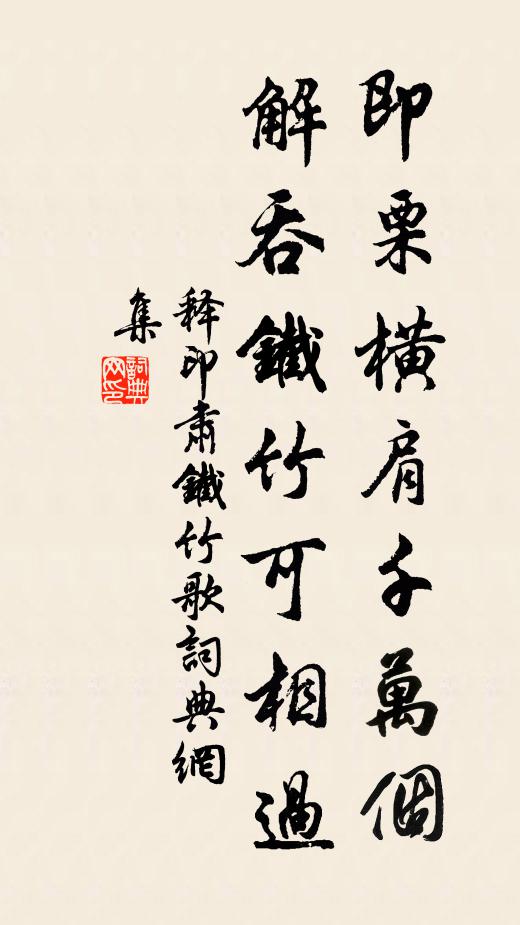 即栗橫肩千萬個
解吞鐵竹可相過
释印肅鐵竹歌詞典網
集
詞典
网印